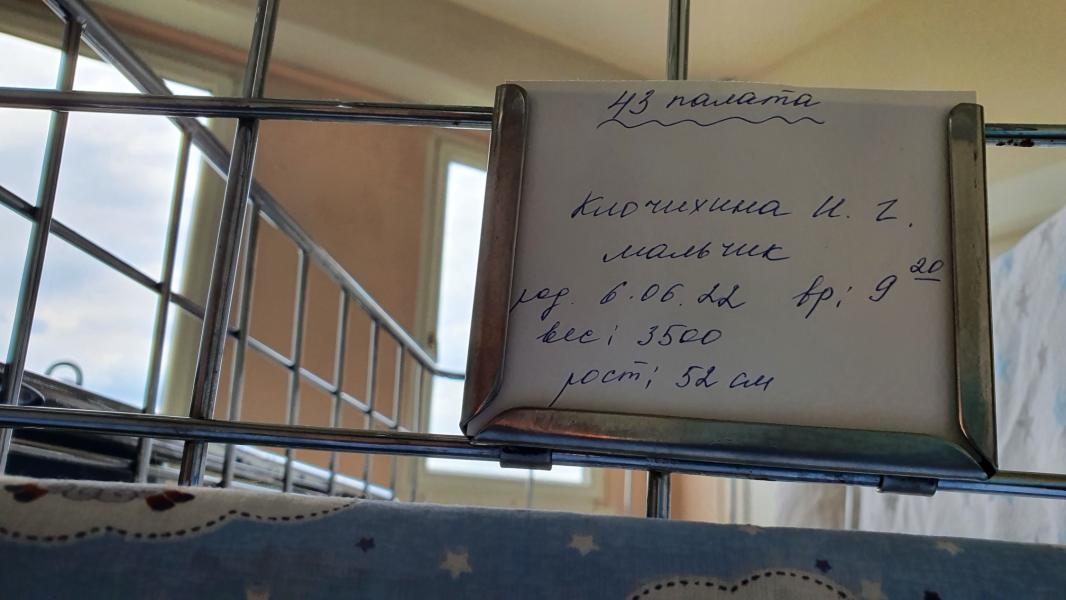 43 палата
Клочихина И. Г.
мальчик
род. 6.06.22 вр; 9 20
вес; 3500
рост; 52 см